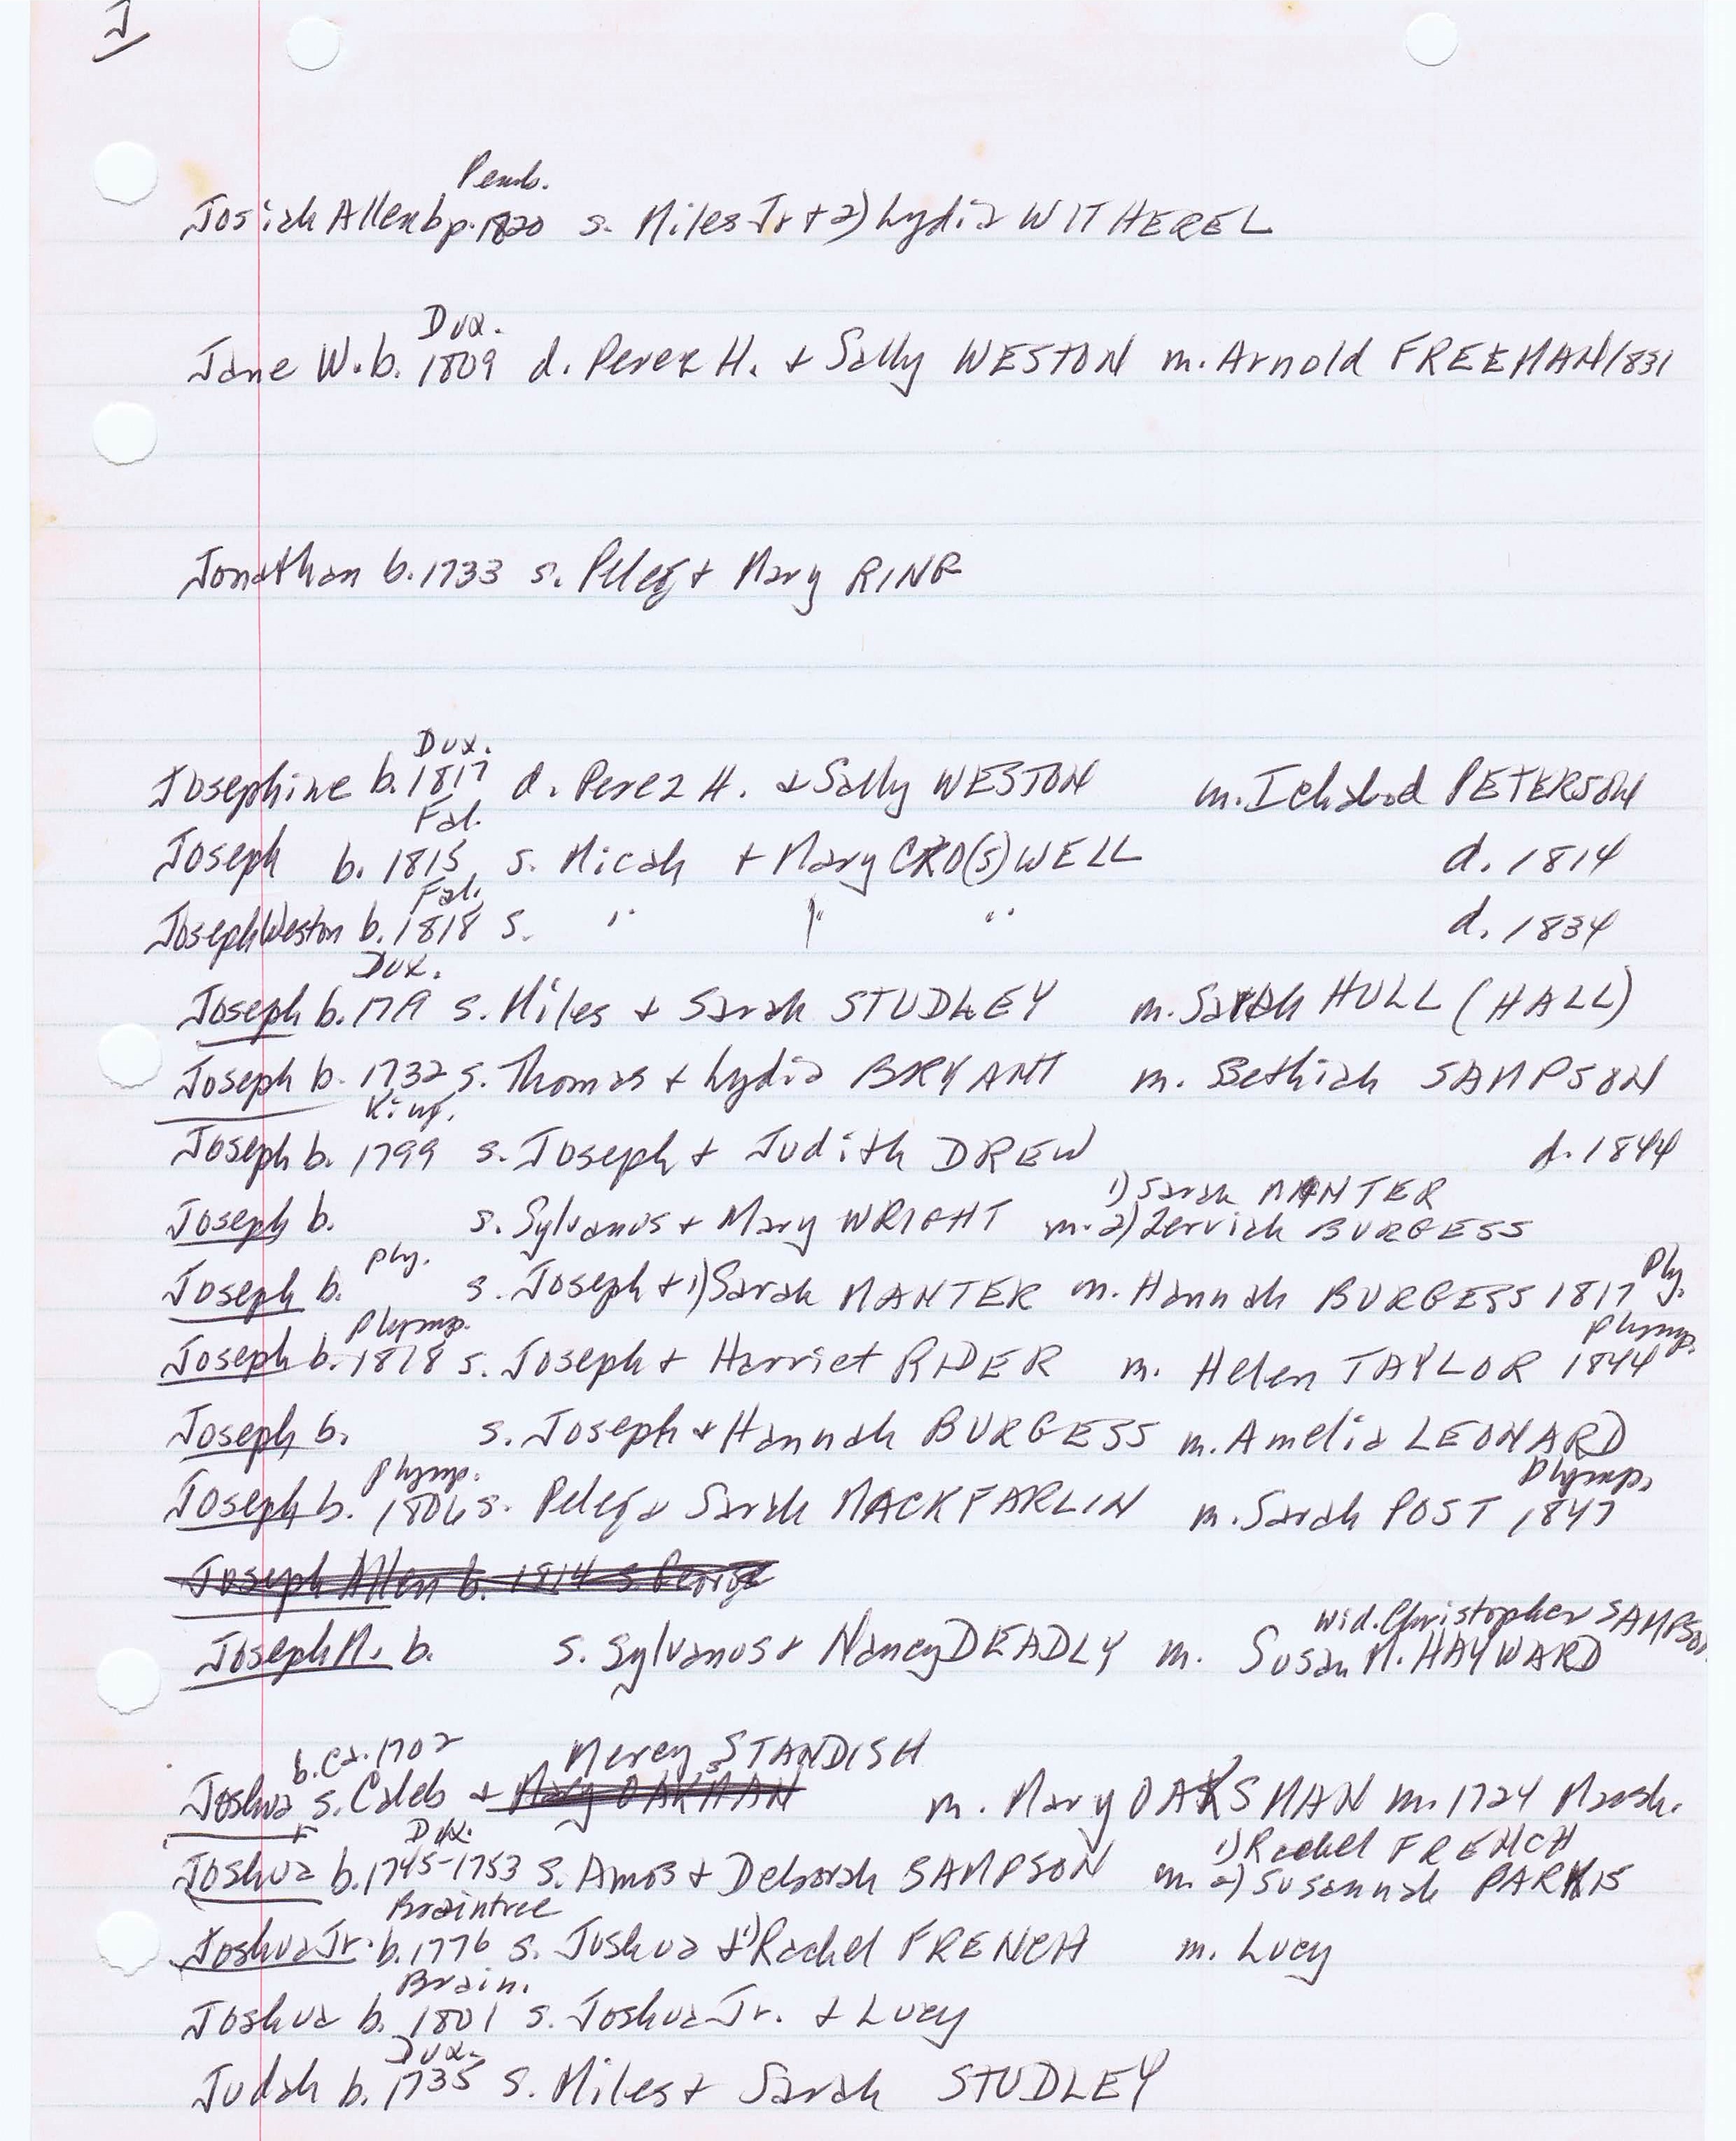 J
Pemb.
Josiah Allen bp. 1820 s. Miles Jr + 2) Lydia WITHEREL
Dux.
Jane W. b. 1809 d. Perez H. + Sally WESTON m. Arnold FREEMAN 1831
Jonathan b. 1733 s. Peleg + Mary RING
Dux.
Josephine b. 1817 d. Perez H. + Sally WESTON m. Ichabod PETERSON
Fal.
Joseph b. 1813 s. Micah + Mary CRO(S)WELL d. 1814
Fal.
Joseph Weston b. 1818 s. " " " d. 1834
Dux.
Joseph b. 1719 s. Miles + Sarah STUDLEY m. Sarah HULL (HALL)
Joseph b. 1732 s. Thomas + Lydia BRYANT m. Bethiah SAMPSON
King.
Joseph b. 1799 s. Joseph + Judith DREW d. 1844
1) Sarah MANTER
Joseph b. s. Sylvanus + Mary WRIGHT m. 2) Zerviah BURGESS
Ply. Ply.
Joseph b. s. Joseph + 1) Sarah MANTER m. Hannah BURGESS 1817
Plymp. Plymp.
Joseph b. 1818 s. Joseph + Harriet RIDER m. Helen TAYLOR 1844
Joseph b. s. Joseph + Hannah BURGESS m. Amelia LEONARD
Plymp. Plymp.
Joseph b. 1806 s. Peleg + Sarah MACKFARLIN m. Sarah POST 1847
Joseph Allen b. 1814 s. George
wid. Christopher SAMPSON
Joseph M. b. s. Sylvanus + Nancy DEADLY m. Susan M. HAYWARD
b. ca. 1702 Mercy STANDISH
Joshua s. Caleb + Mary OAKMAN m. Mary OAKSMAN m. 1724 Marsh.
Dux. 1) Rachel FRENCH
Joshua b. 1745-1753 s. Amos + Deborah SAMPSON m. 2) Susannah PARRIS
Braintree
Joshua Jr. b. 1776 s. Joshua + 1) Rachel FRENCH m. Lucy
Brain.
Joshua b. 1801 s. Joshua Jr. + Lucy
Dux.
Judah b. 1735 s. Miles + Sarah STUDLEY